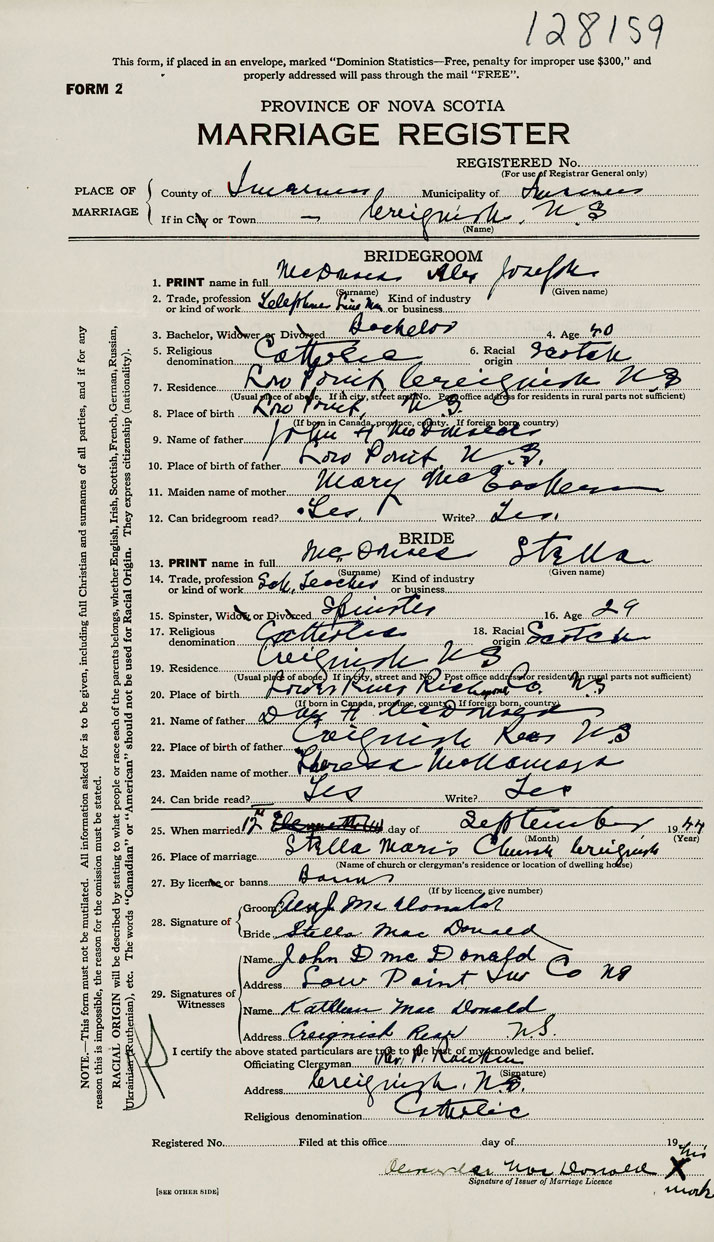 128159
This form, if placed in an envelope, marked "Dominion Statistics—Free, penalty for improper use $300," and
properly addressed will pass through the mail "FREE".
FORM 2
PROVINCE OF NOVA SCOTIA
MARRIAGE REGISTER
REGISTERED No.
(For use of Registrar General only)
PLACE OF MARRIAGE
County of Inverness Municipality of Inverness
If in City or Town — Creignish, N S
(Name)
BRIDEGROOM
1. PRINT name in full Alex Joseph
(Surname) (Given name)
2. Trade, profession or kind of work Telephone Line Man Kind of industry or business
3. Bachelor, Widower or Divorced Bachelor 4. Age 40
5. Religious denomination Catholic 6. Racial origin Scotch
7. Residence Low Point, Creignish N S
(Usual place of abode. If in city, street and No. Post office address for residents in rural parts not sufficient)
8. Place of birth Low Point, N. S.
(If born in Canada, province, county. If foreign born, country)
9. Name of father John
10. Place of birth of father Low Point N. S.
11. Maiden name of mother Mary
12. Can bridegroom read? Yes. Write? Yes.
BRIDE
13. PRINT name in full Stella
(Surname) (Given name)
14. Trade, profession or kind of work Sch. Teacher Kind of industry or business
15. Spinster, Widow or Divorced Spinster 16. Age 29
17. Religious denomination Catholic 18. Racial origin Scotch
19. Residence Creignish N S
(Usual place of abode. If in city, street and No. Post office address for resident in rural parts not sufficient)
20. Place of birth Lower River Richmond Co. N S
(If born in Canada, province, county. If foreign born, country)
21. Name of father
22. Place of birth of father Creignish Rear N S
23. Maiden name of mother Theresa McNamara
24. Can bride read? Yes Write? Yes
25. When married 12th day of September 1944
(Month) (Year)
26. Place of marriage Stella Maris Church Creignish
(Name of church or clergyman's residence or location of dwelling house)
27. By license or banns Banns
(If by licence, give number)
28. Signature of
Groom Alex J. McDonald
Bride Stella MacDonald
29. Signatures of Witnesses
Name John D McDonald
Address Low Point Inv Co NS
Name Kathleen MacDonald
Address Creignish Rear N.S.
I certify the above stated particulars are true to the best of my knowledge and belief.
Officiating Clergyman Rev. P. Rankin
(Signature)
Address Creignish, N.S.
Religious denomination Catholic
Registered No. Filed at this office day of 19
Alexander MacDonald X his mark
Signature of Issuer of Marriage Licence
[SEE OTHER SIDE]
NOTE.—This form must not be mutilated. All information asked for is to be given, including full Christian and surnames of all parties, and if for any
reason this is impossible, the reason for the omission must be stated.
RACIAL ORIGIN will be described by stating to what people or race each of the parents belongs, whether English, Irish, Scottish, French, German, Russian,
Ukrainian (Ruthenian), etc. The words "Canadian" or "American" should not be used for Racial Origin. They express citizenship (nationality).